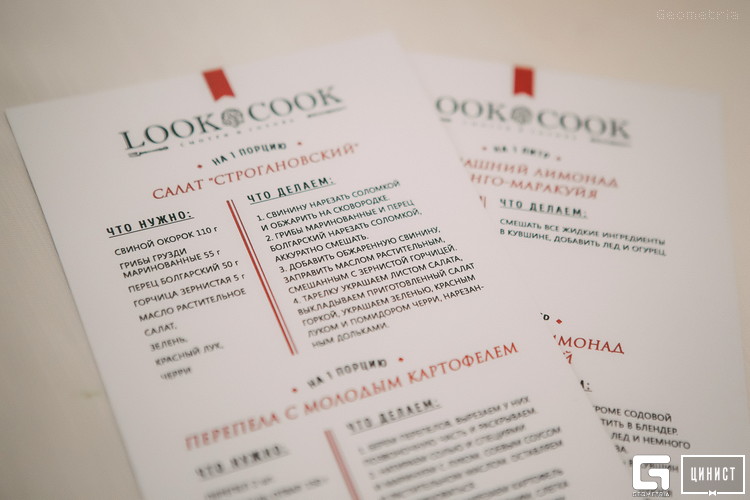 Geometria
LOOK COOK
СМОТРИ И ГОТОВЬ
НА 1 ПОРЦИЮ
САЛАТ "СТРОГАНОВСКИЙ"
ЧТО НУЖНО:
СВИНОЙ ОКОРОК 110 г
ГРИБЫ ГРУЗДИ
МАРИНОВАННЫЕ 55 г
ПЕРЕЦ БОЛГАРСКИЙ 50 г
ГОРЧИЦА ЗЕРНИСТАЯ 5 г
МАСЛО РАСТИТЕЛЬНОЕ
САЛАТ,
ЗЕЛЕНЬ,
КРАСНЫЙ ЛУК,
ЧЕРРИ
ЧТО ДЕЛАЕМ:
1. СВИНИНУ НАРЕЗАТЬ СОЛОМКОЙ
И ОБЖАРИТЬ НА СКОВОРОДКЕ.
2. ГРИБЫ МАРИНОВАННЫЕ И ПЕРЕЦ
БОЛГАРСКИЙ НАРЕЗАТЬ СОЛОМКОЙ,
АККУРАТНО СМЕШАТЬ.
3. ДОБАВИТЬ ОБЖАРЕННУЮ СВИНИНУ,
ЗАПРАВИТЬ МАСЛОМ РАСТИТЕЛЬНЫМ,
СМЕШАННЫМ С ЗЕРНИСТОЙ ГОРЧИЦЕЙ.
4. ТАРЕЛКУ УКРАШАЕМ ЛИСТОМ САЛАТА,
ВЫКЛАДЫВАЕМ ПРИГОТОВЛЕННЫЙ САЛАТ
ГОРКОЙ, УКРАШАЕМ ЗЕЛЕНЬЮ, КРАСНЫМ
ЛУКОМ И ПОМИДОРОМ ЧЕРРИ, НАРЕЗАН-
НЫМ ДОЛЬКАМИ.
НА 1 ПОРЦИЮ
ПЕРЕПЕЛА С МОЛОДЫМ КАРТОФЕЛЕМ
ЧТО НУЖНО:
ЧТО ДЕЛАЕМ:
1. БЕРЕМ ПЕРЕПЕЛОВ, ВЫРЕЗАЕМ У НИХ
ПОЗВОНОЧНУЮ ЧАСТЬ И РАСКРЫВАЕМ.
СОЛЬЮ И СПЕЦИЯМИ
ЛУКОМ, СОЕВЫМ СОУСОМ
МАСЛОМ, ОСТАВЛЯЕМ
КАРТОФЕЛЬ
OOK COOK
НА 1 ЛИТР
АШНИЙ ЛИМОНАД
НГО-МАРАКУЙЯ
ЧТО ДЕЛАЕМ:
СМЕШАТЬ ВСЕ ЖИДКИЕ ИНГРЕДИЕНТЫ
В КУВШИНЕ, ДОБАВИТЬ ЛЕД И ОГУРЕЦ
ИМОНАД
Й
М:
РОМЕ СОДОВОЙ
ТИТЬ В БЛЕНДЕР.
ЛЕД И НЕМНОГО
ВА.
ЦИНИСТ